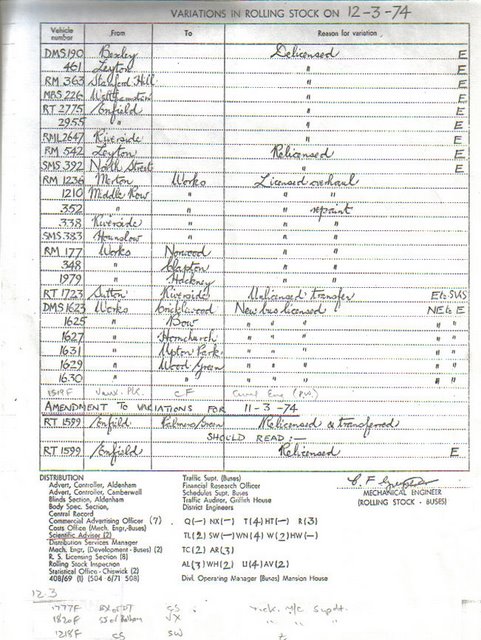 VARIATIONS IN ROLLING STOCK ON 12-3-74
Vehicle number From To Reason for variation
DMS 190 Bexley Delicensed E
461 Leyton " E
RM 363 Stamford Hill " E
MBS 226 Walthamstow " E
RT 2775 Enfield " E
2955 " " E
RML 2647 Riverside " E
RM 542 Leyton Relicensed E
SMS 392 North Street " E
RM 1236 Merton Works Licensed overhaul
1210 Middle Row " " "
352 " " repaint
338 Riverside " " "
SMS 383 Hounslow " " "
RM 177 Works Norwood " "
348 " Clapton " "
1979 " Hackney " "
RT 1723 Sutton Riverside Unlicensed transfer E to SUS
DMS 1623 Works Cricklewood New bus licensed NE to E
1625 " Bow " " " " "
1627 " Hornchurch " " " " "
1631 " Upton Park " " " " "
1629 " Wood Green " " " " "
1630 " " " " " " "
1519F CF
AMENDMENT TO VARIATIONS FOR 11-3-74
RT 1599 Enfield Palmers Green Relicensed & transferred
SHOULD READ:—
RT 1599 Enfield Relicensed E
DISTRIBUTION
Advert, Controller, Aldenham
Advert, Controller, Camberwell
Blinds Section, Aldenham
Body Spec. Section,
Central Record
Commercial Advertising Officer (7)
Costs Office (Mech. Engr, Buses)
Scientific Advisor (2)
Distribution Services Manager
Mech. Engr, (Development - Buses) (2)
R. S. Licensing Section (8)
Rolling Stock Inspection
Statistical Office - Chiswick (2)
408/69 (1) (504 6/71 508)
Traffic Supt. (Buses)
Financial Research Officer
Schedules Supt. Buses
Traffic Auditor, Griffith House
District Engineers
Q(—) NX(—) T(4) HT(—) R(3)
TL(2) SW(—) WN(4) W(2) HW(—)
TC(2) AR(3)
AL(3) WH(2) U(4) AV(2)
Divl. Operating Manager (Buses) Mansion House
MECHANICAL ENGINEER
(ROLLING STOCK - BUSES)
12 3
1777F GS
1820F SJ of Balham VX
1218F GS SW